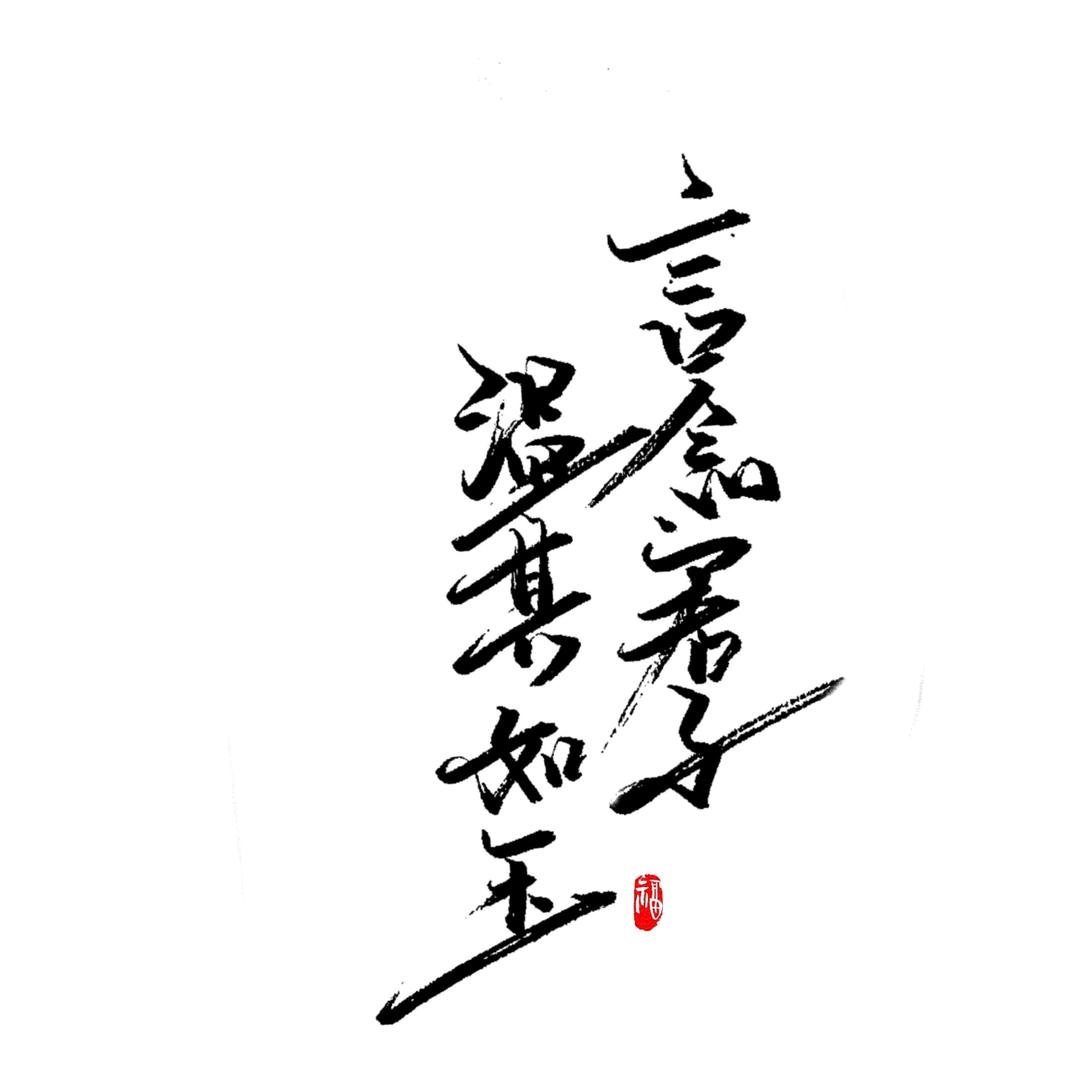 言念君子
温其如玉
福